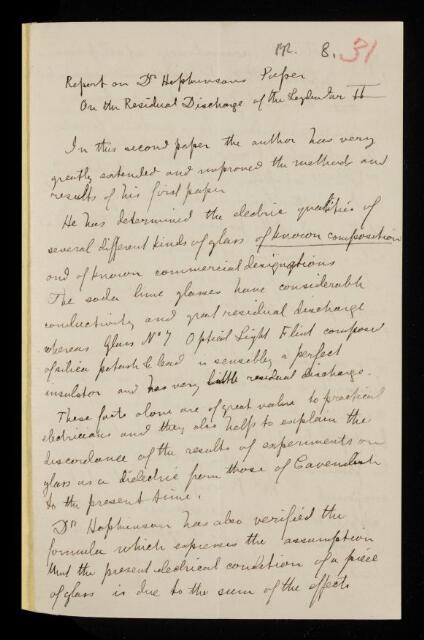 RR. 8. 31
Report on Dr Hopkinsons Paper
On the Residual Discharge of the Leyden Jar II
In this second paper the author has very
greatly extended and improved the method and
results of his first paper
He has determined the electric qualities of
several different kinds of glass of known composition
and of known commercial designations
The soda lime glasses have considerable
conductivity and great residual discharge
whereas Glass No 7 Optical Light Flint composed
of silica potash & lead is sensibly a perfect
insulator and has very little residual discharge.
These facts alone are of great value to practical
electricians and they also help to explain the
discordance of the results of experiments on
glass as a dielectric from those of Cavendish
to the present time.
Dr Hopkinson has also verified the
formula which expresses the assumption
that the present electrical condition of a piece
of glass is due to the sum of the effects